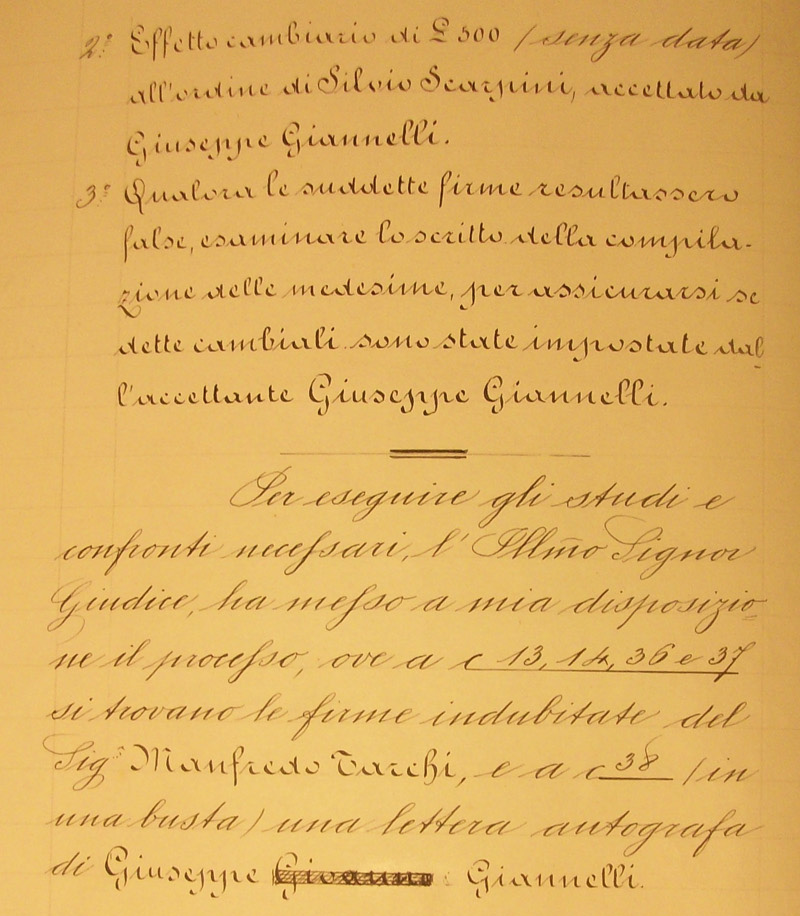 2.° Effetto cambiario di £ 500 (senza data)
all'ordine di Silvio Scarpini, accettato da
Giuseppe Giannelli.
3.° Qualora le suddette firme resultassero
false, esaminare lo scritto della compila-
zione delle medesime, per assicurarsi se
dette cambiali sono state impostate dal
l'accettante Giuseppe Giannelli.
Per eseguire gli studi e
confronti necessari, l'Illmo Signor
Giudice, ha messo a mia disposizio=
ne il processo, ove a c 13, 14, 36 e 37
si trovano le firme indubitate del
Sigr Manfredo Tarchi, e a c 38 (in
una busta) una lettera autografa
di Giuseppe Giannelli.